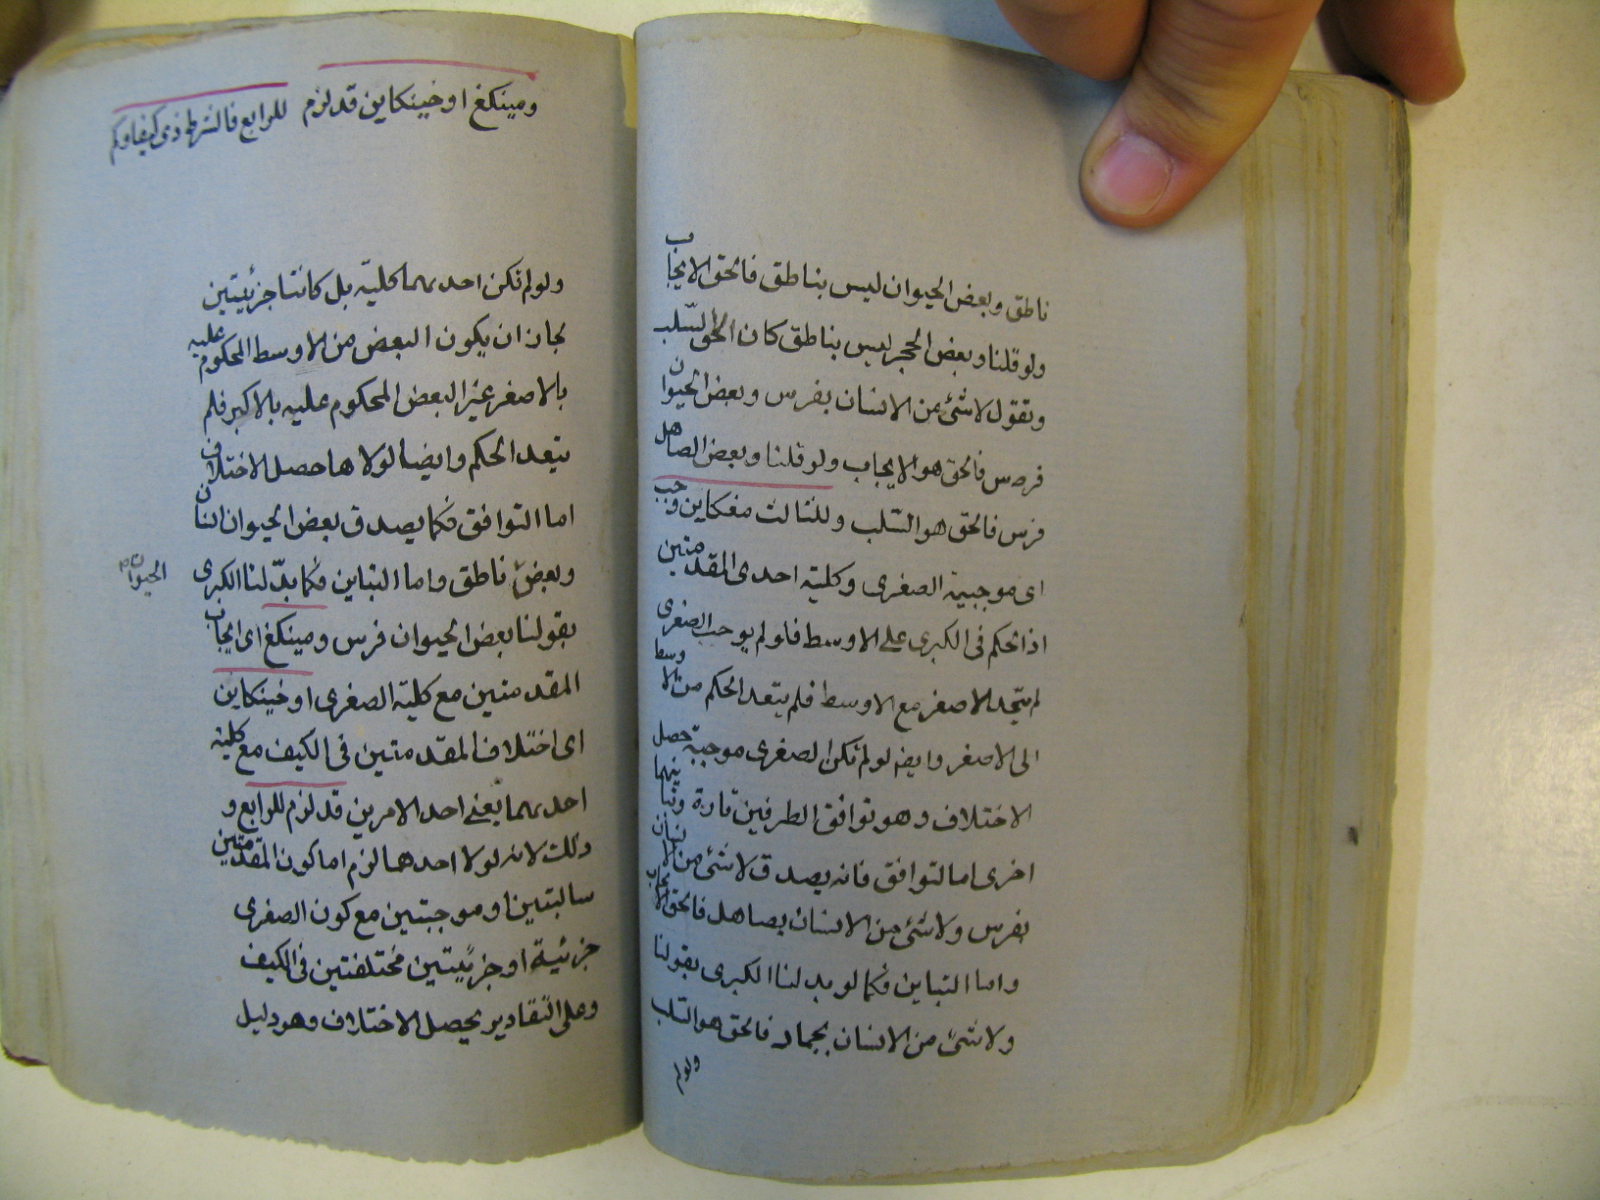 ناطق وبعض الحيوان ليس بناطق فالحق الايجاب
ولو قلنا وبعض الحجر ليس بناطق كان الحق السّلب
ونقول لا شئ من الانسان بفرس وبعض الحيوان
فرس فالحق هو الايجاب ولو قلنا وبعض الصاهل
فرس فالحق هو السّلب وللثالث مغكاين وجب
اى موجبية الصغرى وكلية احدى المقدمتين
اذ الحكم فى الكبرى على الاوسط فلو لم يوجب الصغرى
لم يتحد الاصغر مع الاوسط فلم يتعد الحكم من الاوسط
الى الاصغر وايضه لو لم تكن الصغرى موجبة حصل
الاختلاف وهو توافق الطرفين تارة وتباينهما
اخرى اما التوافق فانه يصدق لا شئ من الانسان
بفرس ولا شئ من الانسان بصاهل فالحق الايجاب
واما التباين فكما لو بدلنا الكبرى بقولنا
ولا شئ من الانسان بجماد فالحق هو السّلب
ولو لم
ومينكغ او خينكاين قد لزم للرابع فالشرط ذى كيفا وكم
ولو لم تكن احديهما كلية بل كانتا جزئيتين
لجاز ان يكون البعض من الاوسط المحكوم عليه
بالاصغر غير البعض المحكوم عليه بالاكبر فلم
يتعد الحكم وايضا لولاها حصل الاختلاف
اما التوافق فكما يصدق بعض الحيوان انسان
وبعض ناطق واما التباين فكما بدّلنا الكبرى
الحيوان
بقولنا بعض الحيوان فرس ومينكغ اى ايجاب
المقدمتين مع كلية الصغرى او خينكاين
اى اختلاف المقدمتين فى الكيف مع كلية
احديهما يعنى احد الامرين قد لزم للرابع و
ذلك لانه لولا احدهما لزم اما كون المقدّمتين
سالبتين او موجبتين مع كون الصغرى
جزئية او جزئيتين مختلفتين فى الكيف
وعلى التقادير يحصل الاختلاف وهو دليل